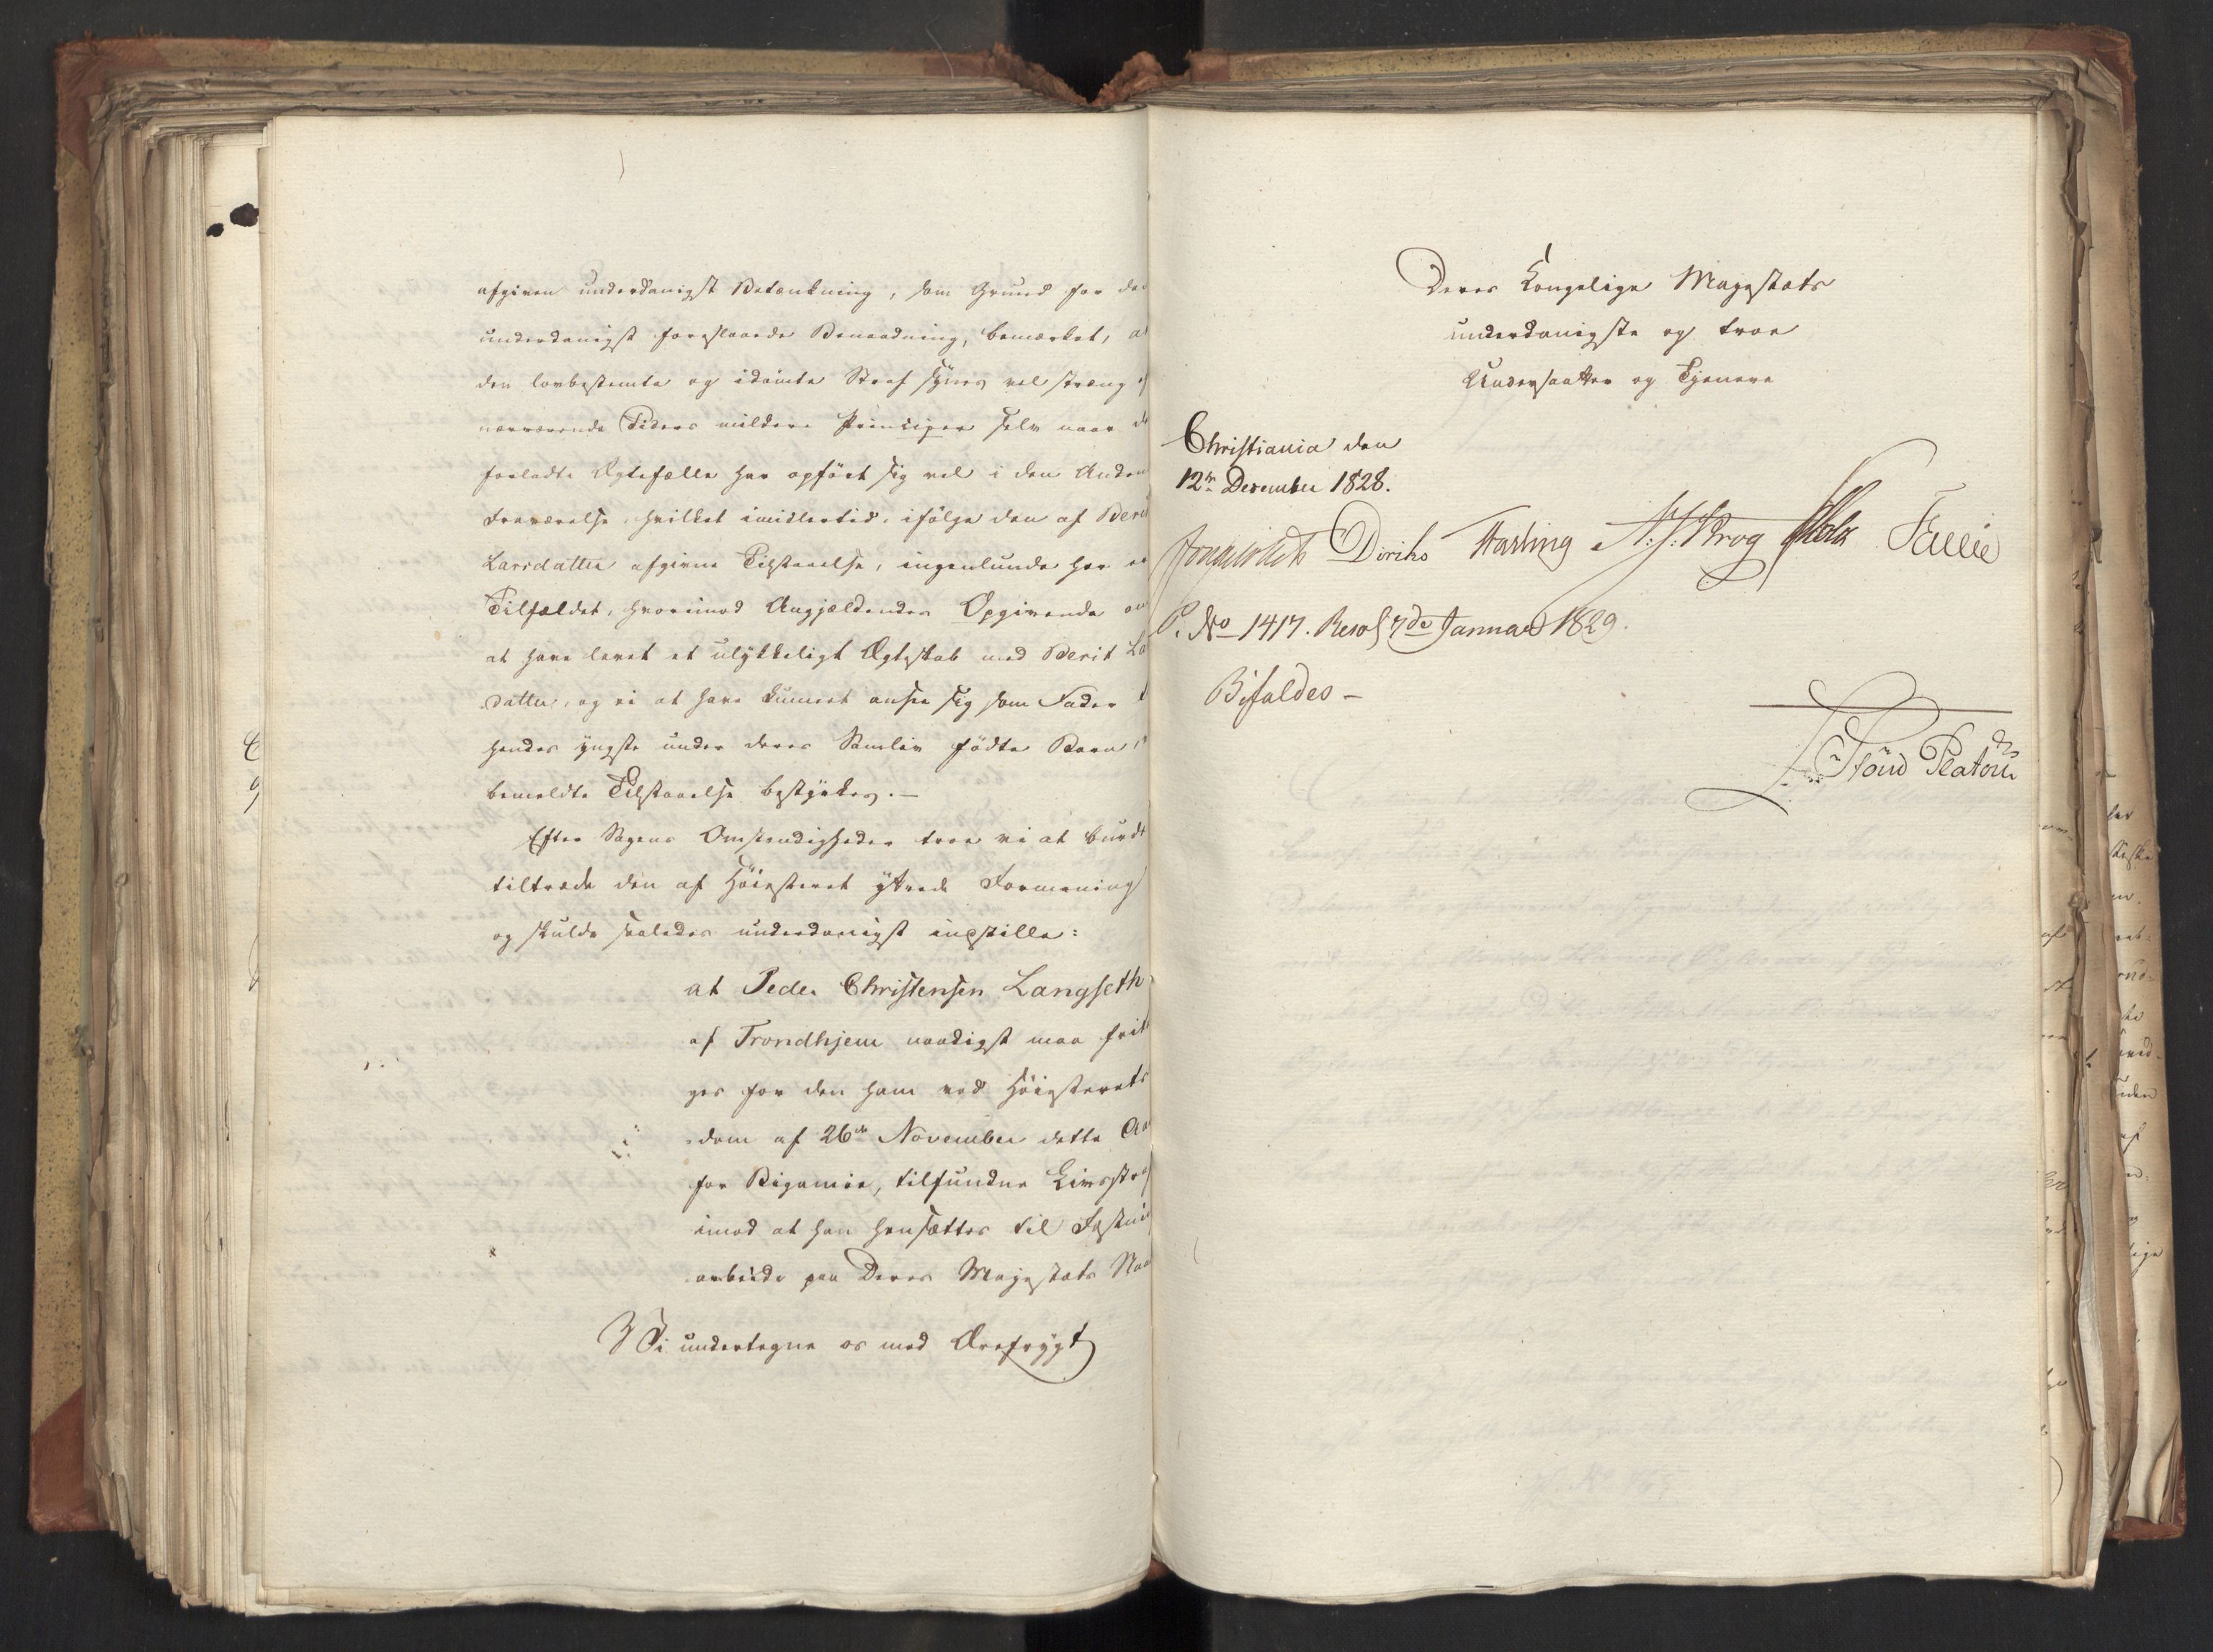 afgiven underdanigst Betænkning, som Grund for den
underdanigst foreslaaede Benaadning, bemærket, at
den lovbestemte og idømte Straf synes vel stræng ef
nærværende Tiders mildere Principer selv naar de
forladte Ægtefælle har opført sig vel i den Anden
Fraværelse, hvilket imidlertid, ifølge den af Berit
Larsdatter afgivne Tilstaaelse, ingenlunde har
Tilfældet, hvorimod Angjældendes Opgivende om
at have levet et ulykkeligt Ægteskab med Berit La
datter, og ei at have kunnet ansee sig som Fader t
hendes yngste under deres Samliv fødte Barn,
bemeldte Tilstaaelse bestyrkes.—
Efter Sagens Omstændigheder troe vi at burde
tiltræde den af Høiesteret yttrede Formening
og skulde saaledes underdanigst indstille:
at Peder Christensen Langseth
af Trondhjem naadigst maa frit
ges for den ham ved Høiesterets
dom af 26de November dette Aa
for Bigamie, tilfundne Livsstraf
imod at han hensættes til Fæstnin
arbeide paa Deres Majestæts Naa
Vi undertegne os med Ærefrygt
Deres Kongelige Majestæts
underdanigste og troe
Undersaatter og Tjenere
Christiania den
12te December 1828.
Diriks Hasling N. J. Krog Holst Fasting
P. No 1417. Resol. 7de Januar 1829.
Bifaldes –